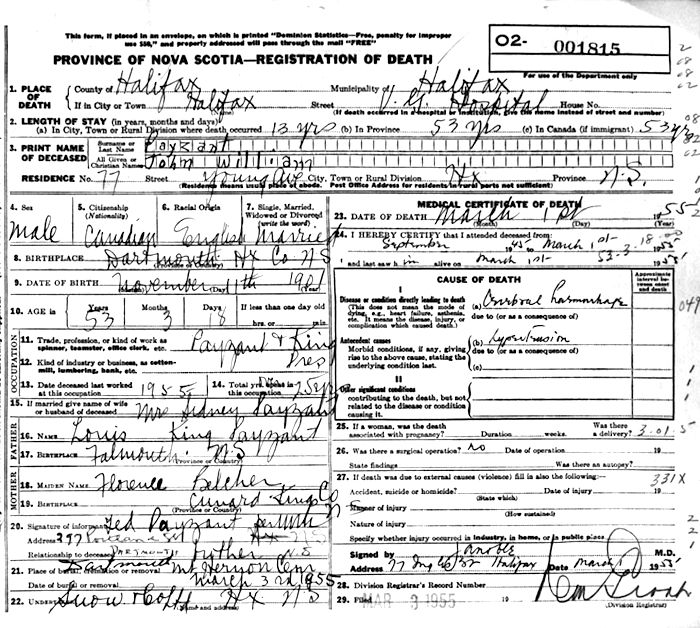 This form, if placed in an envelope, on which is printed "Dominion Statistics—Free, penalty for improper
use $50," and properly addressed will pass through the mail "FREE"
O2- 001815
For use of the Department only
PROVINCE OF NOVA SCOTIA—REGISTRATION OF DEATH
1. PLACE OF DEATH
County of Halifax Municipality of Halifax
If in City or Town Halifax Street V. G. Hospital House No.
(If death occurred in a hospital or institution, give the name instead of street and number)
2. LENGTH OF STAY (in years, months and days)
(a) In City, Town or Rural Division where death occurred 13 yrs (b) In Province 53 yrs (c) In Canada (if immigrant) 53 yrs
3. PRINT NAME OF DECEASED
Surname or Last Name Payzant
All Given or Christian Names John William
RESIDENCE No. 77 Street Young Ave City, Town or Rural Division Hx Province N.S.
(Residence means usual place of abode. Post Office Address for residents in rural parts not sufficient)
4. Sex
Male
5. Citizenship (Nationality)
Canadian
6. Racial Origin
English
7. Single, Married, Widowed or Divorced (write the word)
Married
8. BIRTHPLACE Dartmouth Hx Co N S
(Province or Country)
9. DATE OF BIRTH November 11th 1901
10. AGE in Years Months Days If less than one day old
53 3 18 hrs. or min.
OCCUPATION
11. Trade, profession, or kind of work as spinner, teamster, office clerk, etc. Payzant & King
12. Kind of industry or business, as cotton-mill, lumbering, bank, etc. Pres
13. Date deceased last worked at this occupation 1955
14. Total yrs. in this occupation
15. If married give name of wife or husband of deceased Mrs Sidney Payzant
FATHER
16. NAME Louis King Payzant
17. BIRTHPLACE Falmouth N S
(Province or Country)
MOTHER
18. MAIDEN NAME Florence Belcher
19. BIRTHPLACE Kings Co N S
(Province or Country)
20. Signature of informant Ted Payzant
Address 377 Portland St
Relationship to deceased brother
DARTMOUTH N S
21. Place of burial, cremation or removal Dartmouth Mt Hermon Cem
Date of burial or removal March 3rd 1955
22. UNDERTAKER Snow & Co Hx N S
MEDICAL CERTIFICATE OF DEATH
23. DATE OF DEATH March 1st 1955
(Month) (Day)
24. I HEREBY CERTIFY that I attended deceased from:
September 1945 to March 1st 1955
and last saw h im alive on March 1st 1955
53-3-18
CAUSE OF DEATH
Approximate interval between onset and death
I
Disease or condition directly leading to death
(This does not mean the mode of dying, e.g., heart failure, asthenia, etc. It means the disease, injury, or complication which caused death.)
(a) Cerebral haemorrhage
due to (or as a consequence of)
Antecedent causes
Morbid conditions, if any, giving rise to the above cause, stating the underlying condition last.
(b) Hypertension
due to (or as a consequence of)
(c)
II
Other significant conditions contributing to the death, but not related to the disease or condition causing it.
049
25. If a woman, was the death associated with pregnancy? Duration weeks. Was there a delivery?
3-01-5
26. Was there a surgical operation? No Date of operation
State findings Was there an autopsy?
27. If death was due to external causes (violence) fill in also the following:-
331X
Accident, suicide or homicide? Date of injury
(State which)
Manner of injury
(How sustained)
Nature of injury
Specify whether injury occurred in industry, in home, or in public place
Signed by M.D.
Address Halifax Date March 1 1955
28. Division Registrar's Record Number
29. Filed MAR 3 1955
(Division Registrar)